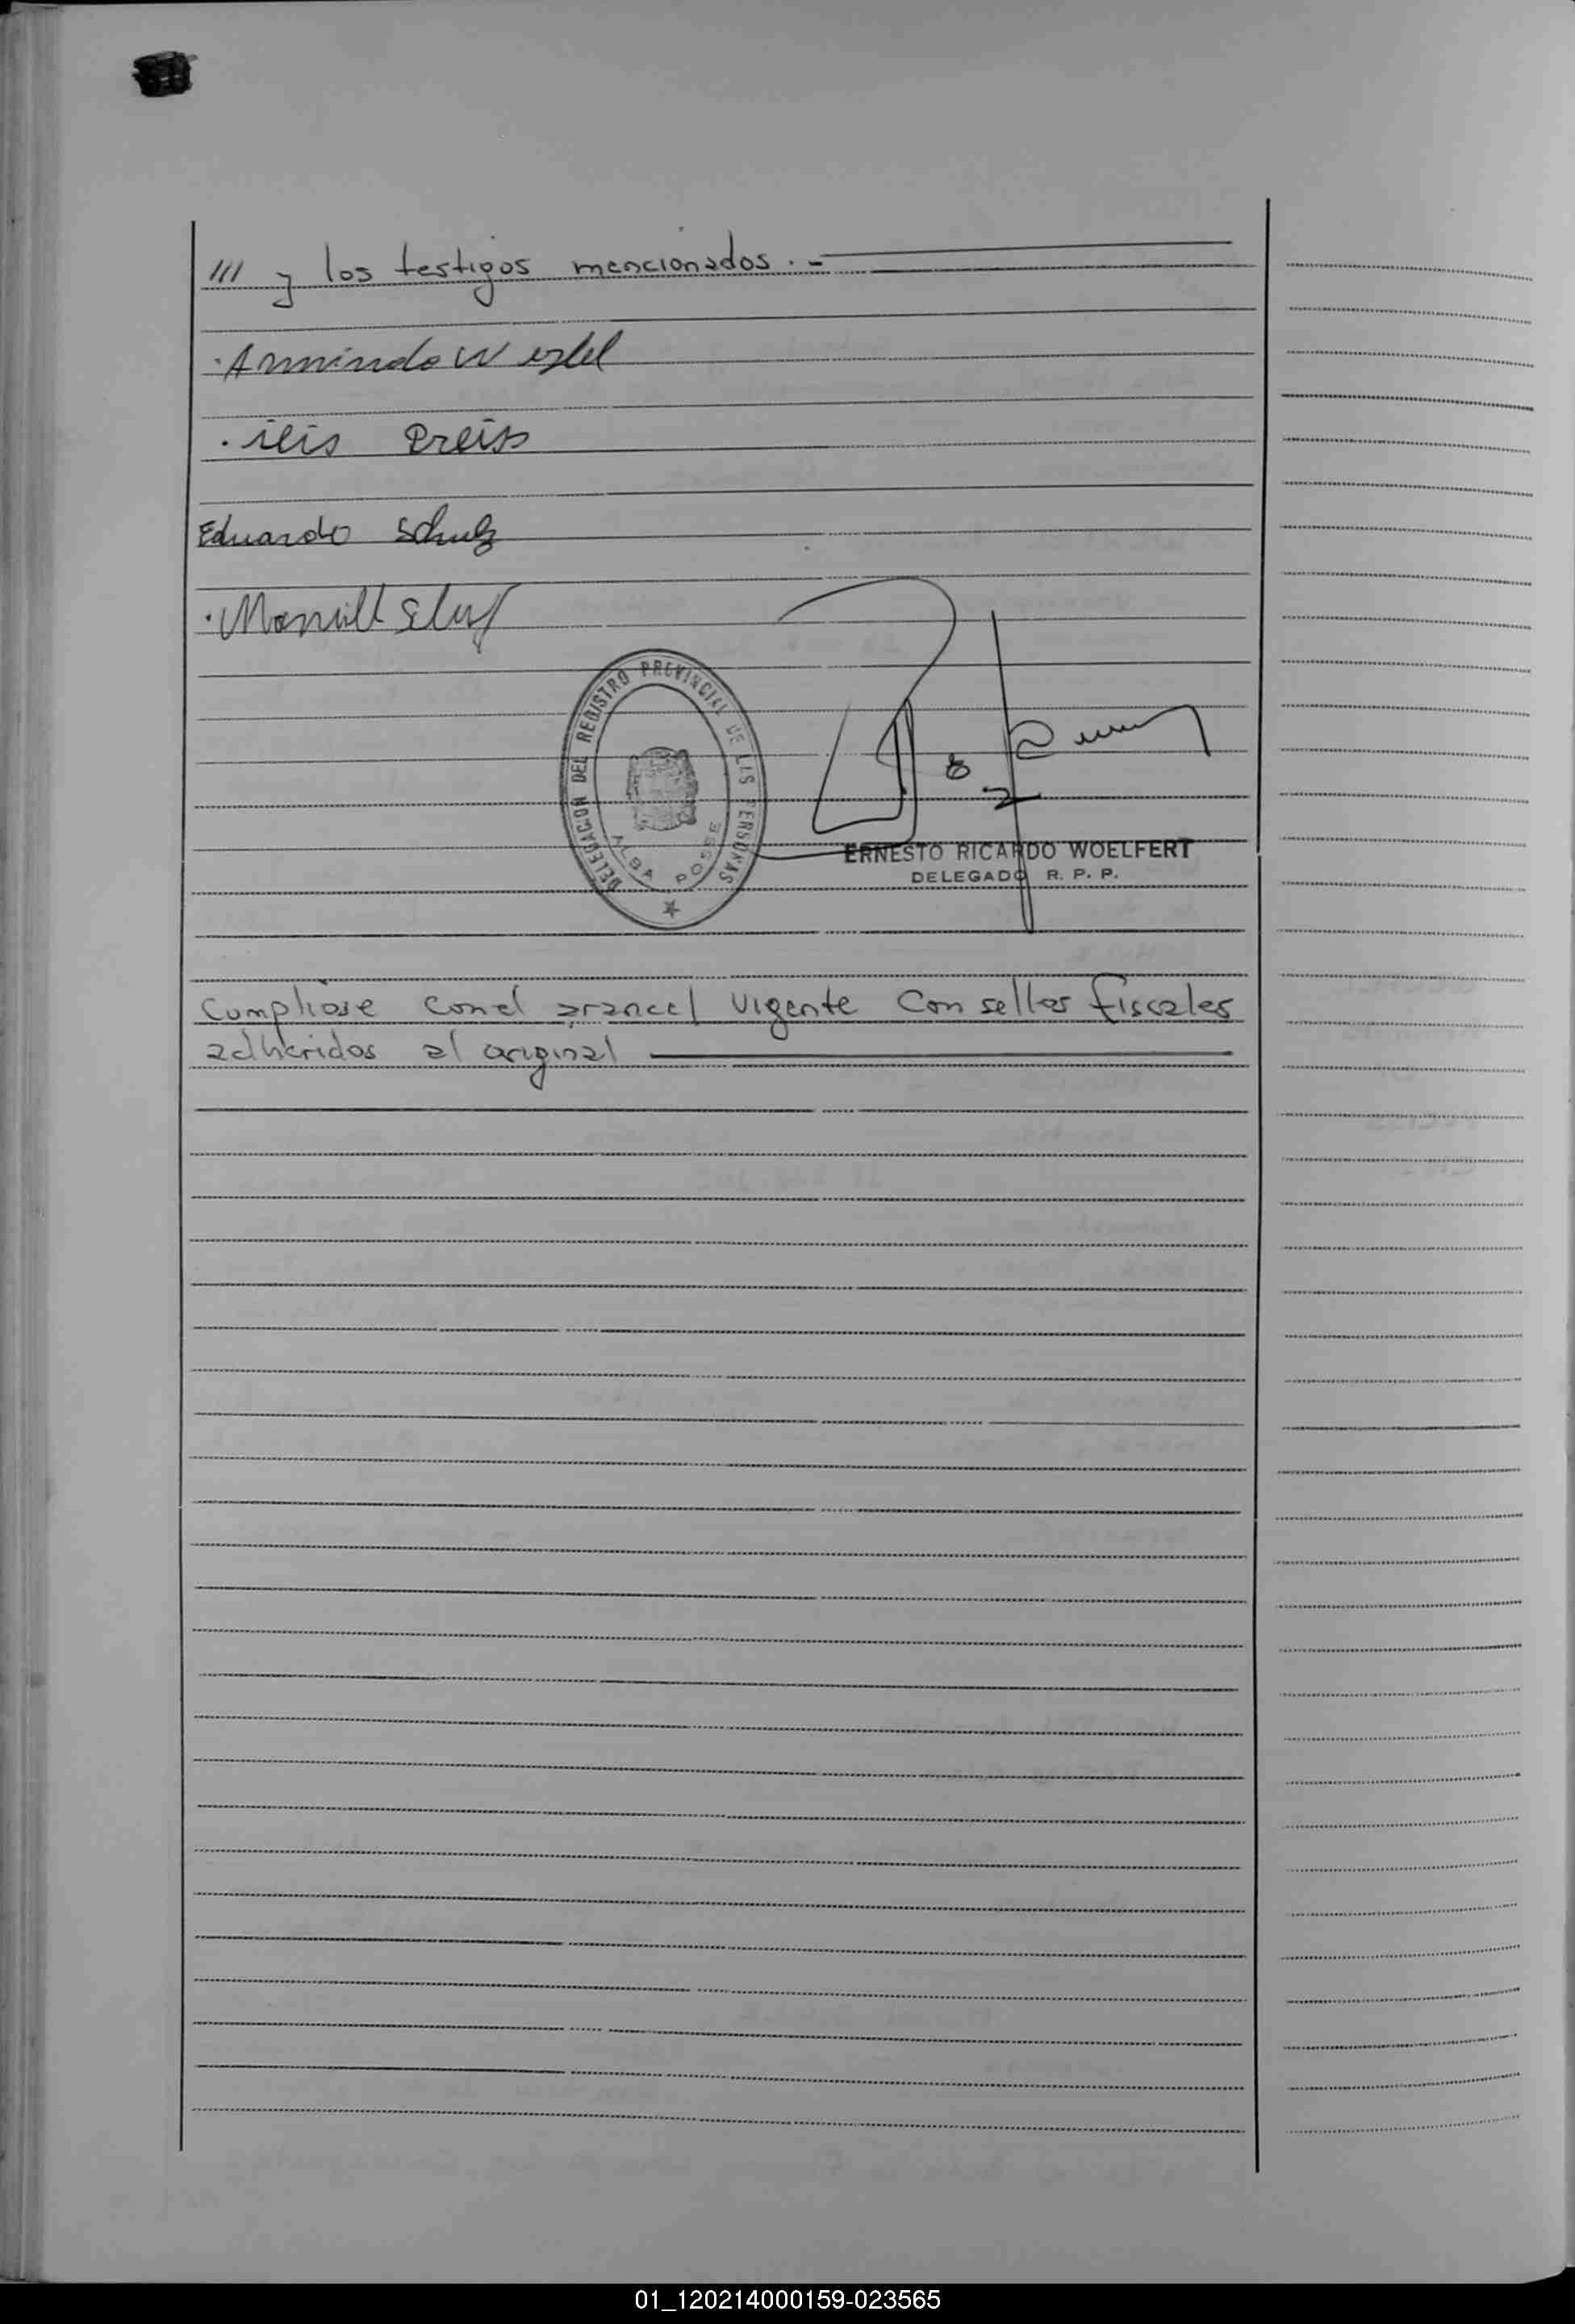 /// y los testigos mencionados.-
Eduardo Schulz
DELEGACION DEL REGISTRO PROVINCIAL DE LAS PERSONAS
ALBA POSSE
ERNESTO RICARDO WOELFERT
DELEGADO R. P. P.
Cumpliose con el arancel vigente con sellos fiscales
adheridos al original
01_120214000159-023565